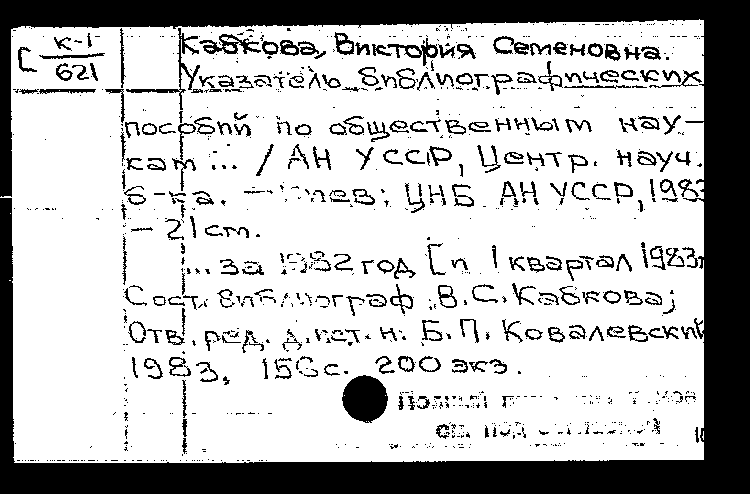 [ К-1
621
Кабкова, Виктория Семеновна.
Указатель библиографических
пособий по общественным нау-
кам ... / АН УССР, Центр. науч.
б-ка. — Киев: ЦНБ АН УССР, 1983
— 21 cm.
... за 1982 год [и I квартал 1983г
Сост. библиограф В.С. Кабкова;
Отв. ред. д. ист. н. Б.П. Ковалевский
1983, 156 с. 200 экз.
Полный
см. под